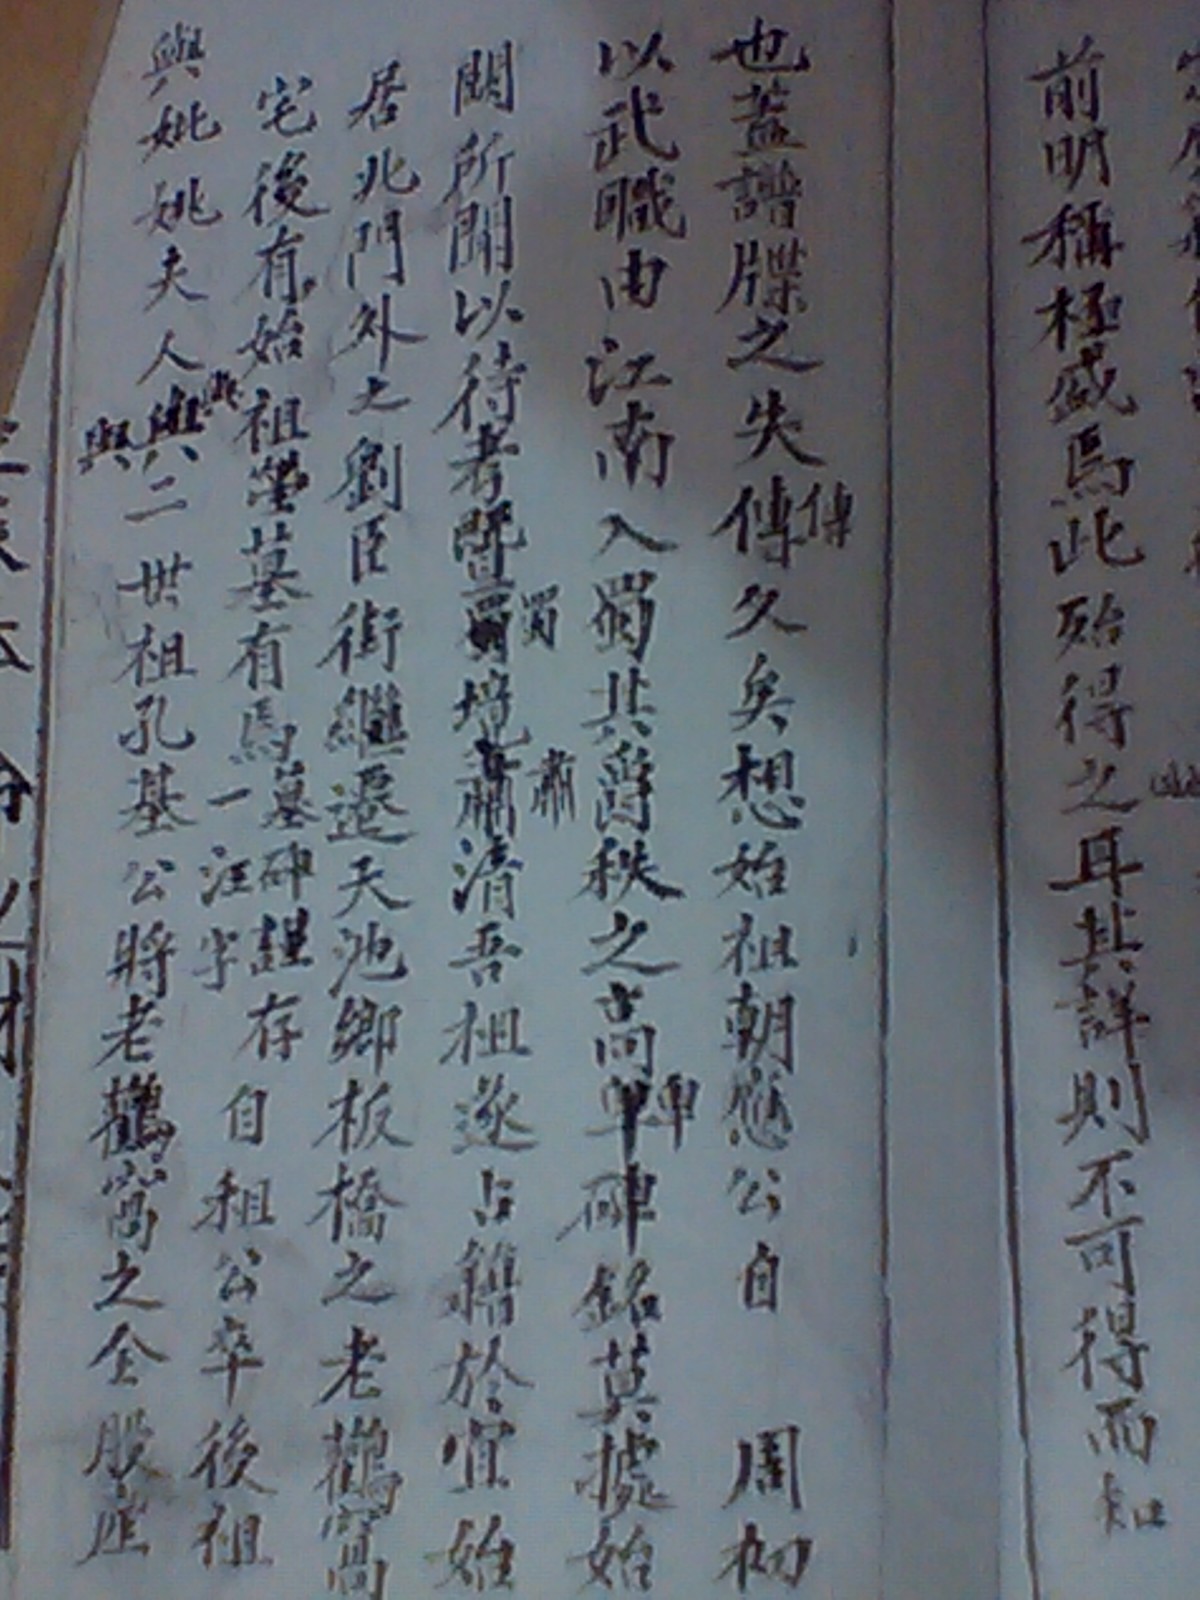 前明稱極盛焉此殆得之耳其詳則不可得而知
也蓋譜牒之失傳久矣想始祖朝應公自 周初
傳
以武職由江南入蜀其爵秩之高卑碑銘莫據始
卑
闕所聞以待考暨蜀境肅清吾祖遂占籍於宜始
蜀
肅
居北門外之劉臣街繼遷天池鄉板橋之老鸛窩
宅後有始祖塋墓有馬墓碑謹存自祖公卒後祖
一汪字
與姚姚夫人與二世祖孔基公將老鸛窩之全股產
與